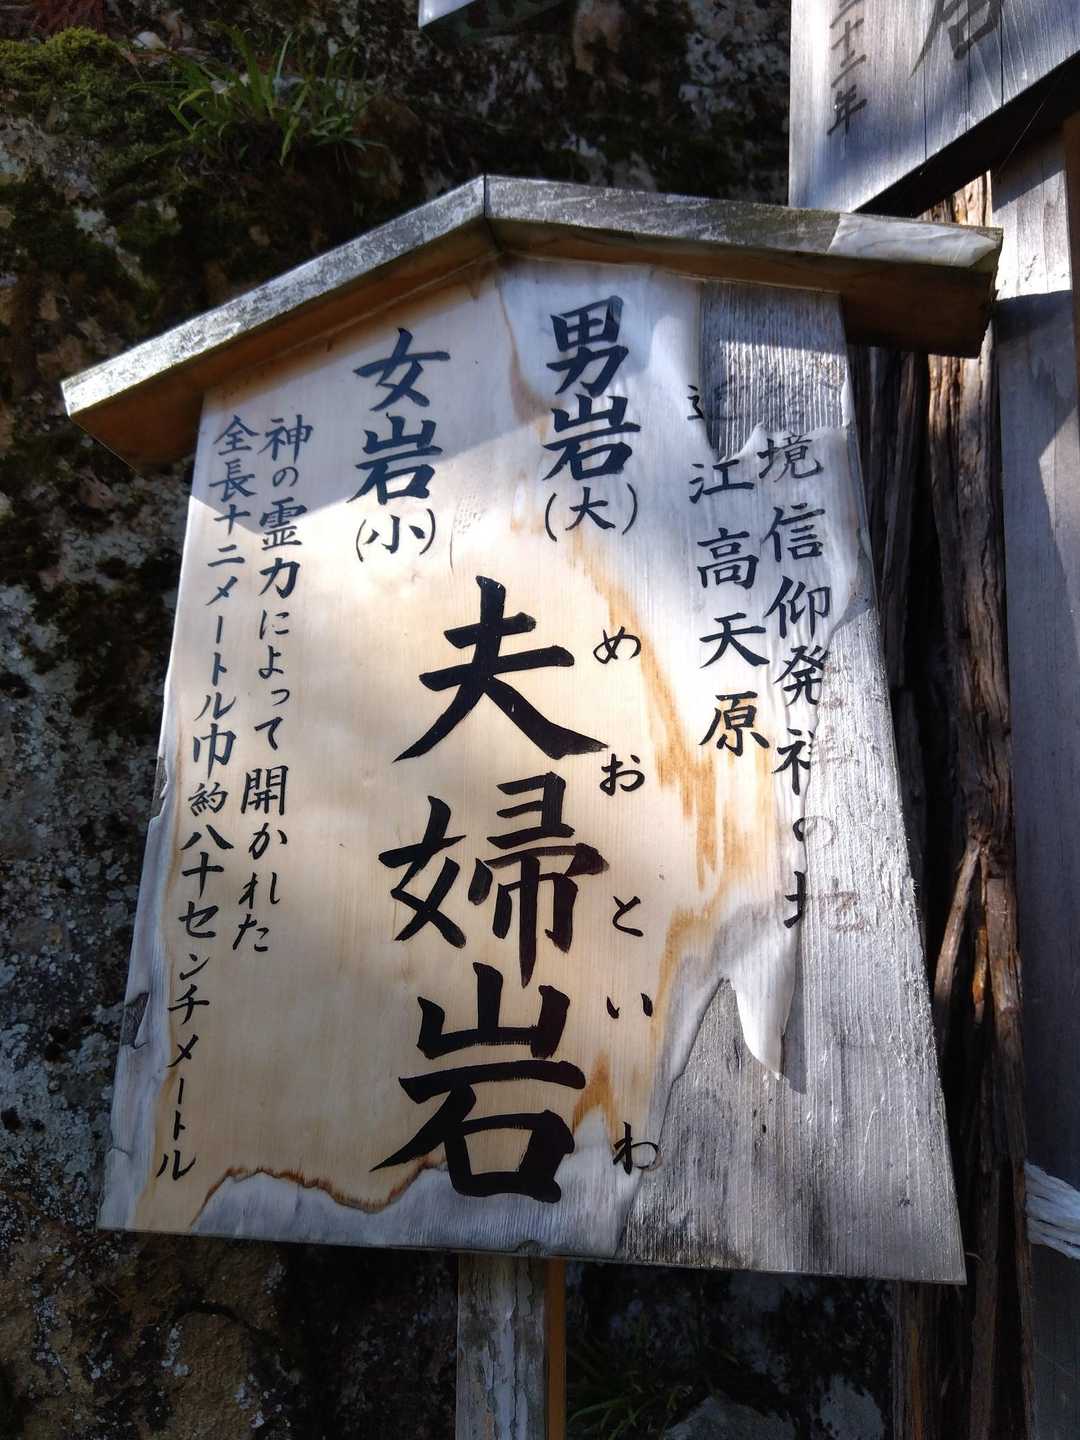 境信仰発祥の地
近江高天原
男岩(大)
女岩(小)
めおといわ
夫婦岩
神の霊力によって開かれた
全長十二メートル巾約八十センチメートル
十二年